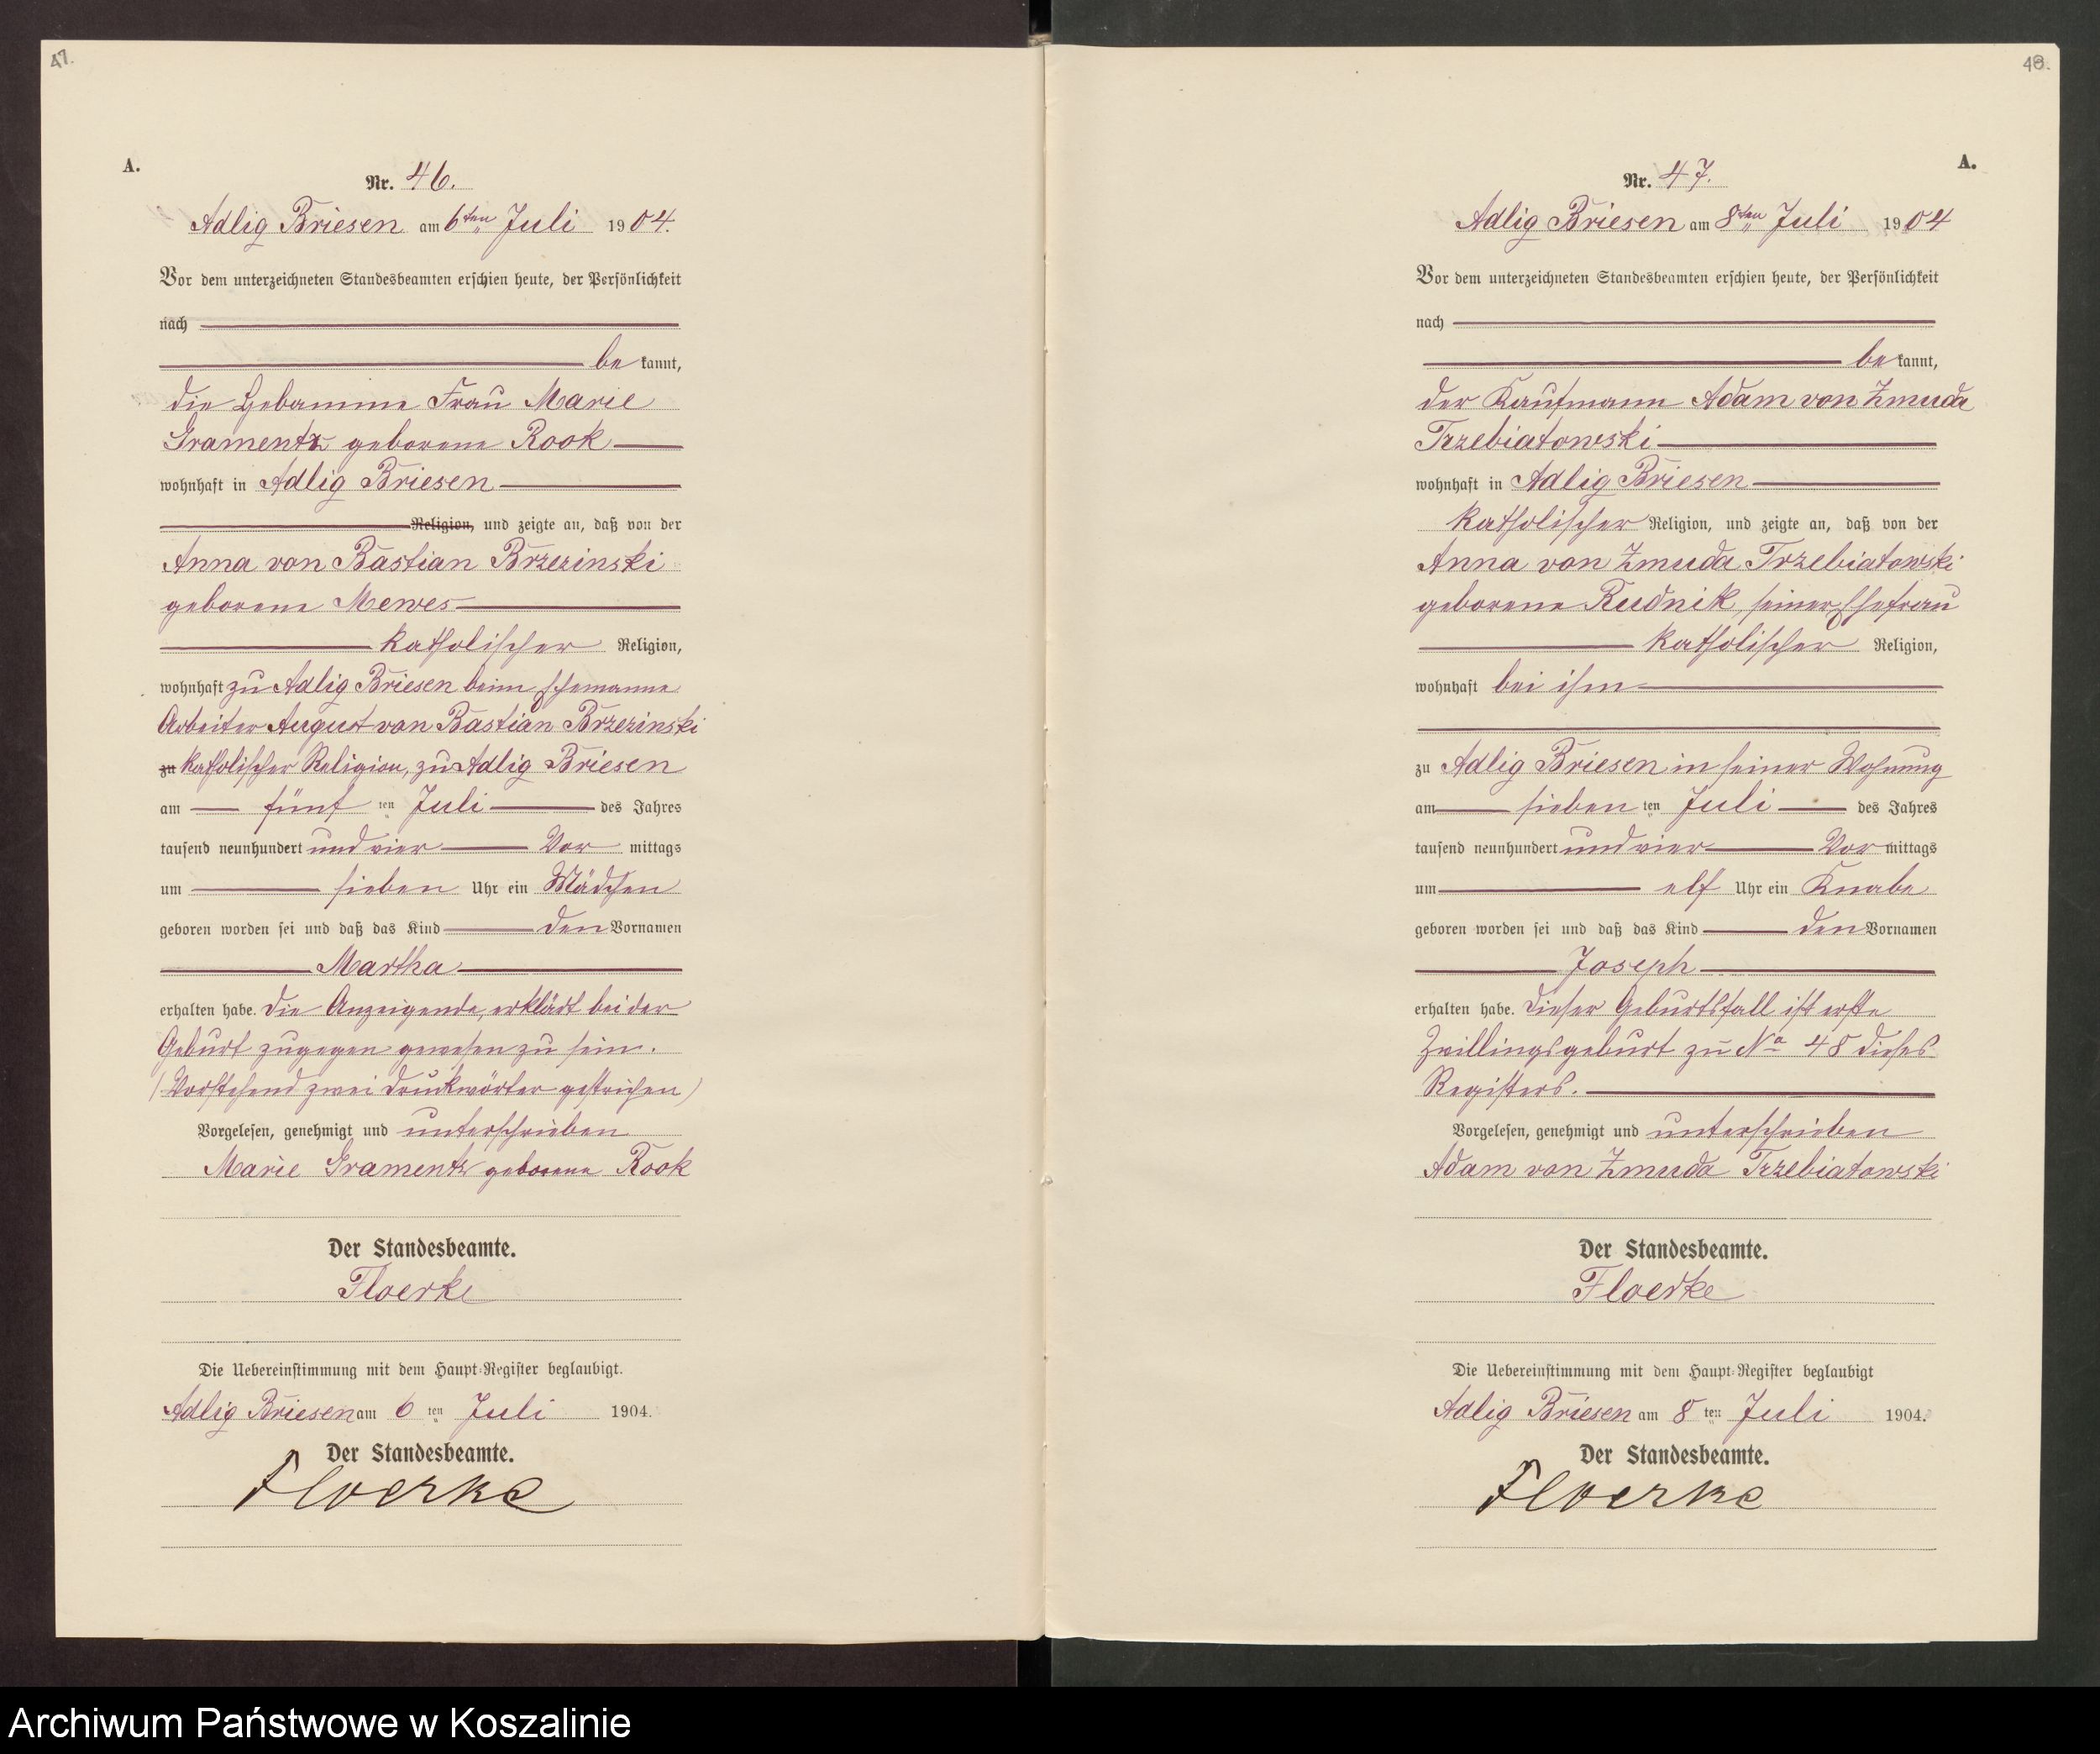 47.
A.
Nr. 46.
Adlig Briesen am 6ten Juli 1904.
Vor dem unterzeichneten Standesbeamten erschien heute, der Persönlichkeit
nach
be kannt,
die Hebamme Frau Marie
Gramentz geborene Rook
wohnhaft in Adlig Briesen
Religion, und zeigte an, daß von der
Anna von Bastian Brzezinski
geborene Mewes
katholischer Religion,
wohnhaft zu Adlig Briesen beim Ehemanne
Arbeiter August von Bastian Brzezinski
zu katholischer Religion, zu Adlig Briesen
am fünf ten Juli des Jahres
tausend neunhundert und vier Vor mittags
um sieben Uhr ein Mädchen
geboren worden sei und daß das Kind den Vornamen
Martha
erhalten habe. Die Anzeigende, erklärt bei der
Geburt zugegen gewesen zu sein.
(Vorstehend zwei Druckwörter gestrichen)
Vorgelesen, genehmigt und unterschrieben
Marie Gramentz geborene Rook
Der Standesbeamte.
Floerke
Die Uebereinstimmung mit dem Haupt-Register beglaubigt.
Adlig Briesen am 6 ten Juli 1904.
Der Standesbeamte.
Floerke
48.
A.
Nr. 47.
Adlig Briesen am 8ten Juli 1904
Vor dem unterzeichneten Standesbeamten erschien heute, der Persönlichkeit
nach
be kannt,
der Kaufmann Adam von Zmuda
Trzebiatowski
wohnhaft in Adlig Briesen
katholischer Religion, und zeigte an, daß von der
Anna von Zmuda Trzebiatowski
geborene Rudnik, seiner Ehefrau
katholischer Religion,
wohnhaft bei ihm
zu Adlig Briesen in seiner Wohnung
am sieben ten Juli des Jahres
tausend neunhundert und vier Vor mittags
um elf Uhr ein Knabe
geboren worden sei und daß das Kind den Vornamen
Joseph
erhalten habe. Dieser Geburtsfall ist erste
Zwillingsgeburt zu No 48 dieses
Registers.
Vorgelesen, genehmigt und unterschrieben
Adam von Zmuda Trzebiatowski
Der Standesbeamte.
Floerke
Die Uebereinstimmung mit dem Haupt-Register beglaubigt
Adlig Briesen am 8 ten Juli 1904.
Der Standesbeamte.
Floerke
Archiwum Państwowe w Koszalinie